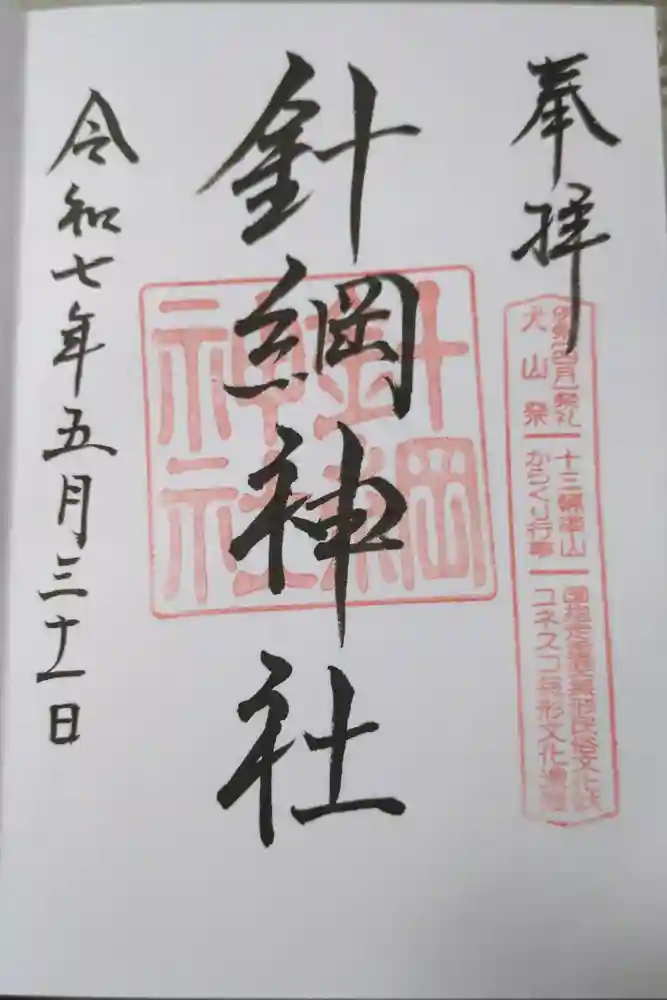 奉拝
例祭(四月)祭礼
犬山祭
十三輛車山
からくり行事
国指定重要無形民俗文化財
ユネスコ無形文化遺産
針綱神社
針綱神社
令和七年五月三十一日